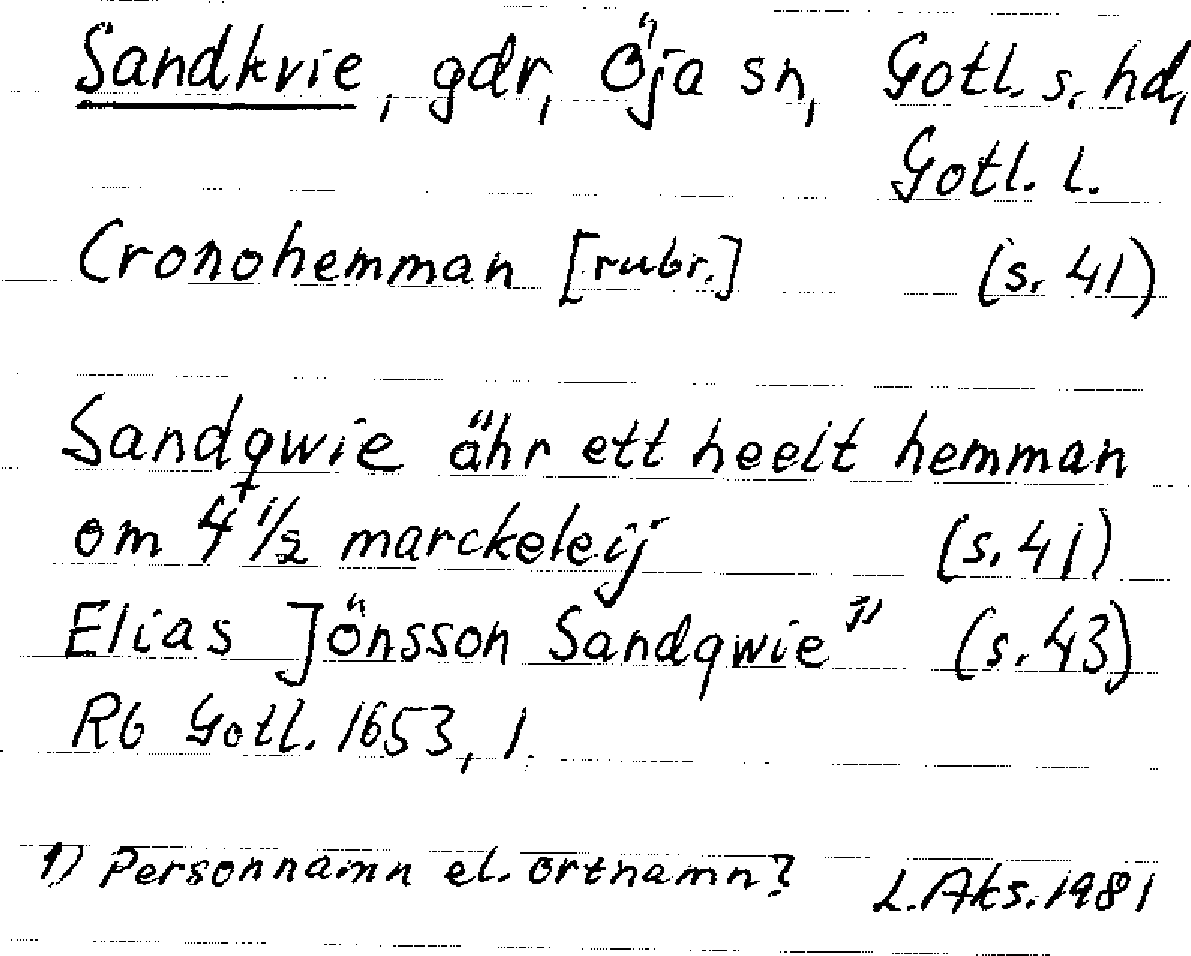 Sandkvie, gdr, Öja sn, Gotl. s. hd,
Gotl. l.
Cronohemman [rubr.] (s. 41)
Sandqwie ähr ett heelt hemman
om 4 1/2 marckeleij (s. 41)
Elias Jönsson Sandqwie 1) (s. 43)
Rb Gotl. 1653, 1.
1) Personnamn el. ortnamn? L. Aks. 1981